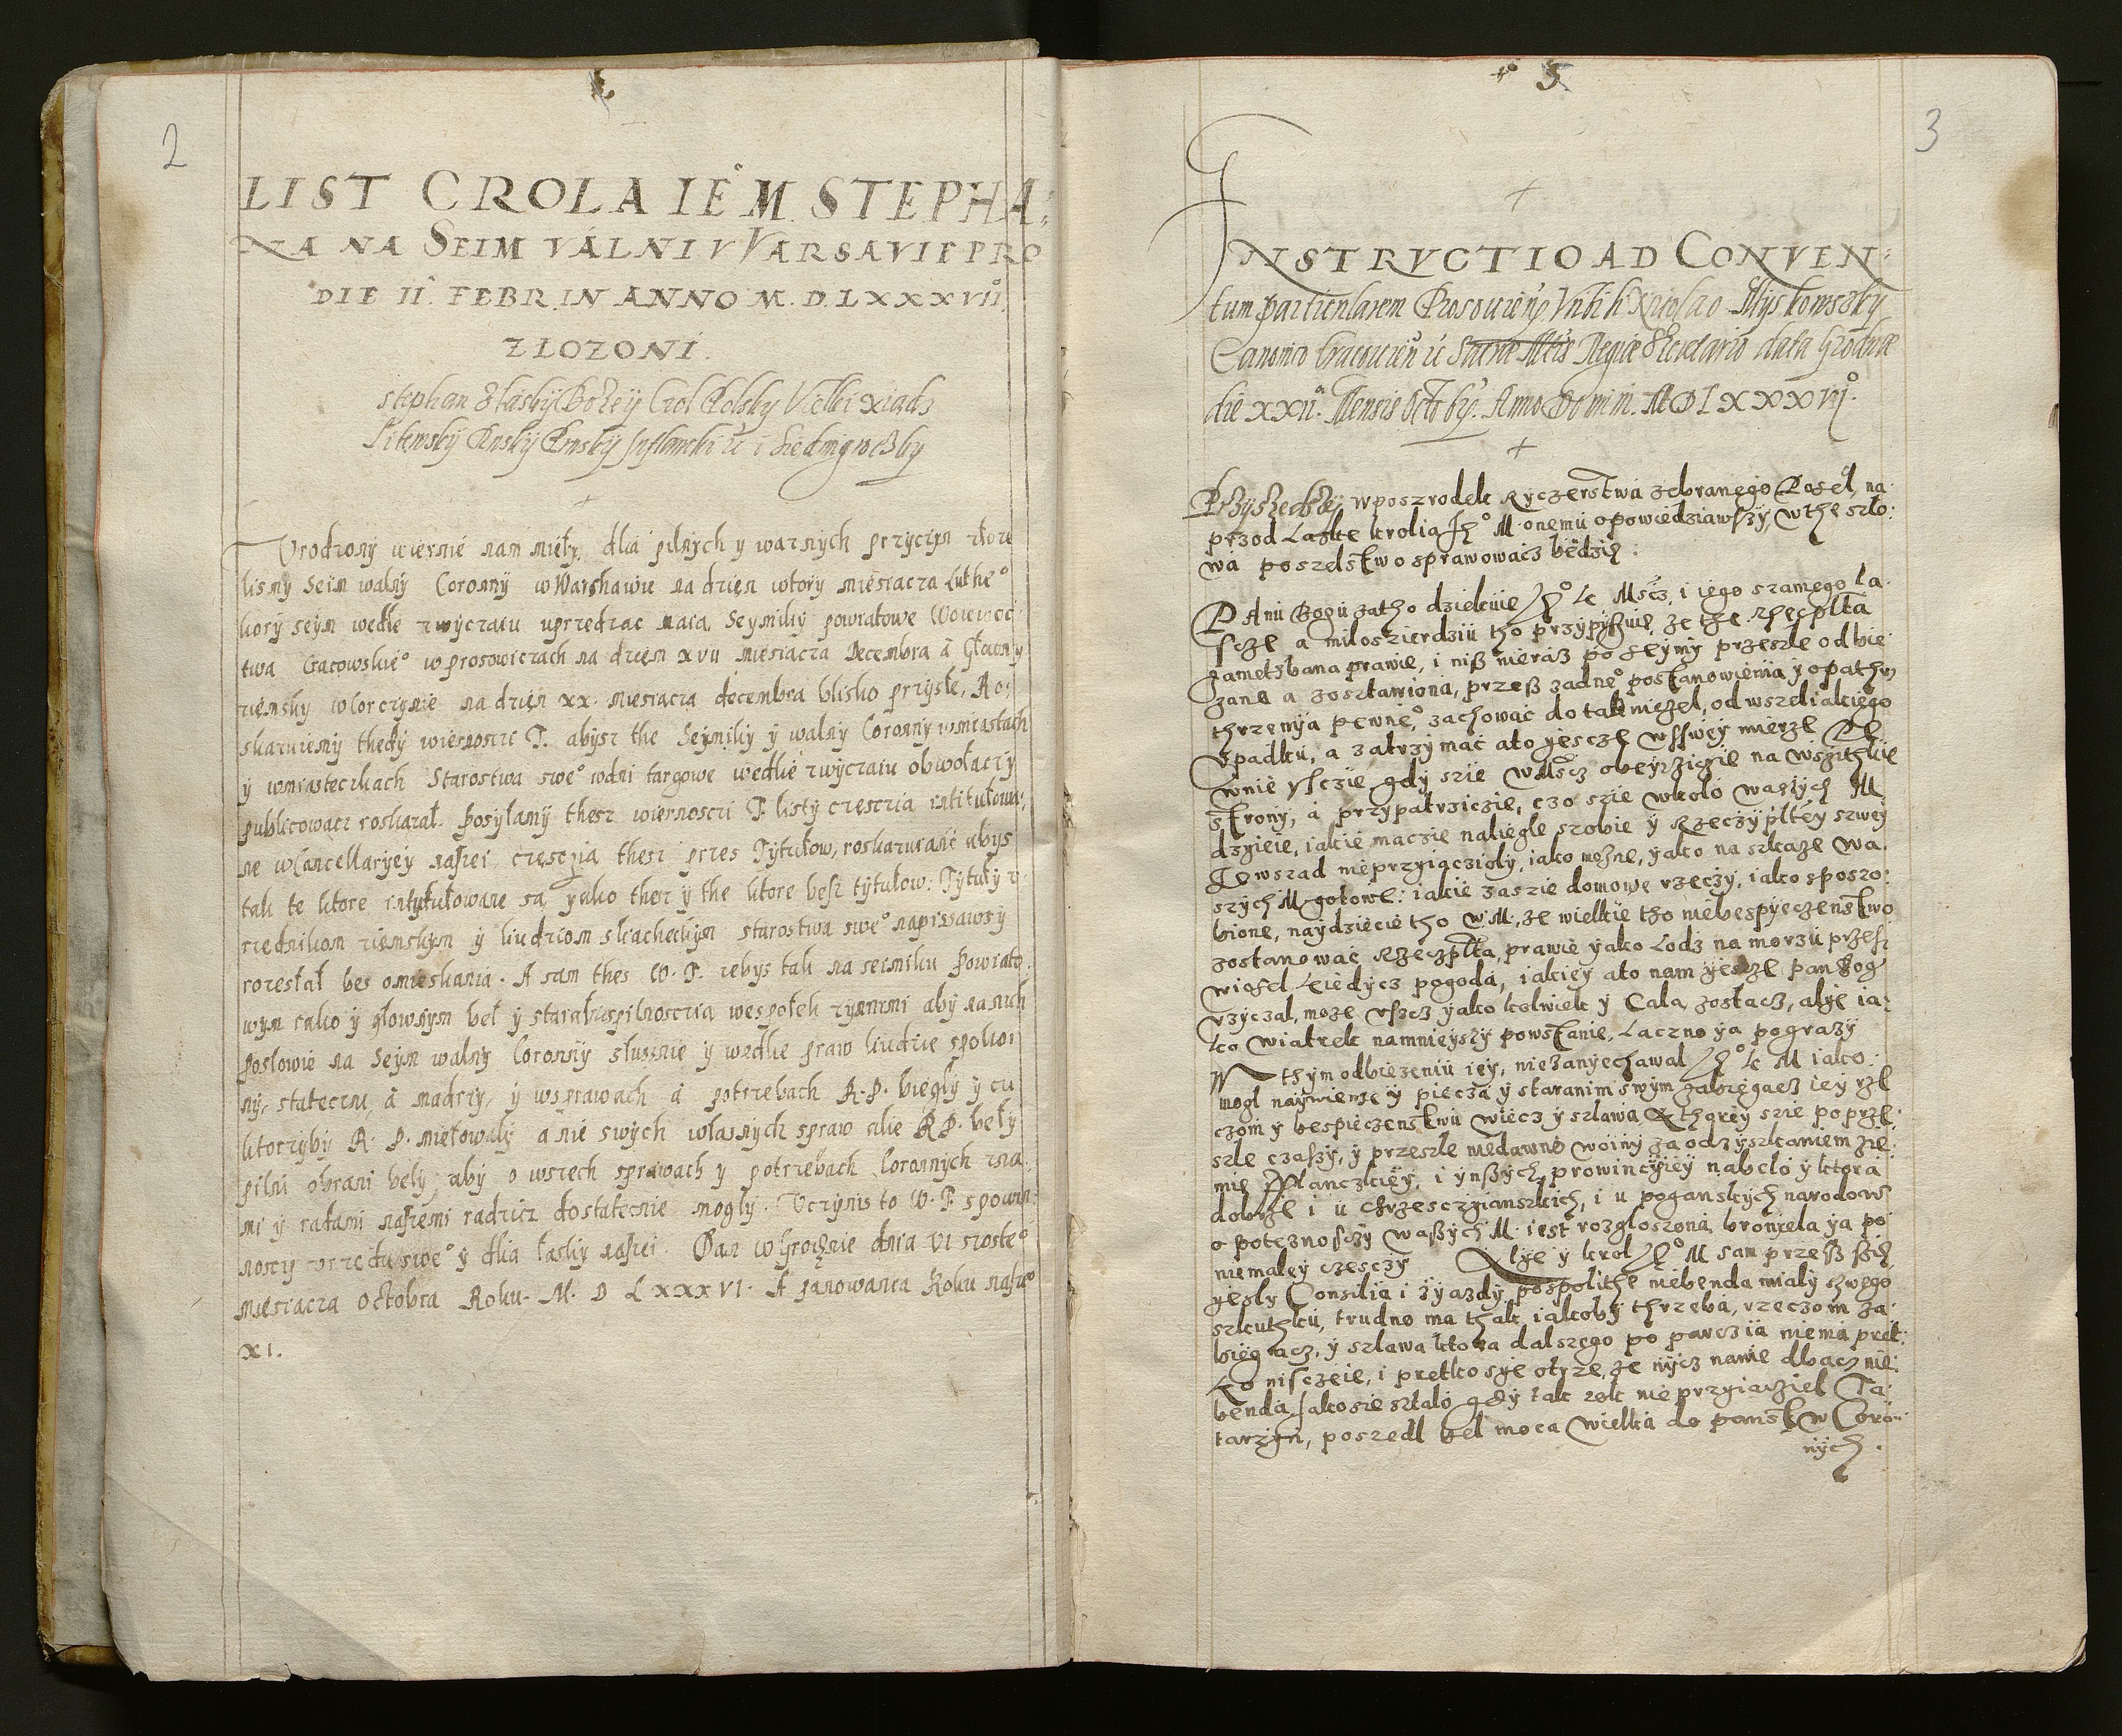 2
LIST CROLA IE͡M. STEPHA:
NA NA SEIM VÁLNI V VARSAVIE PRO
DIE II. FEBR. IN ANNO M. D. LXXXVII.
ZLOZONI.
Stephan z łasky Bozey Crol Polsky Vielki xiądz
Litewsky Rusky Prusky Inflancki &c i Siedmigrodzky
Vrodzony wiernie nam miły. dlia pilnych y waznych przyczyn złozi
lismy Seim walny Coronny w Warshawie na dzien wtory miesiacza Luthe°
ktory seym wedle zwyczaiu uprzedzac maia Seymiky powiatowe Woiewoc
twa Cracowskie° w prosowiczach na dzien XVII miesiacza Decembra á Głowny
ziemsky w Korczynie na dzien XX. miesiacza decembra blisko przyszłe, Ro:
skazuiemy thedy wiernosci T. abysz the Seymiky y walny Coronny w miastach
y w miasteczkach Starostwa swe° w dni targowe wedlie zwyczaiu obwołaczy
publicowacz roskazał. Posyłamy thesz wiernosci T. listy czescia intitułowa:
ne w Cancellaryey naszei czescia thesz przes Tytułow, roskazuiańc abys
tak te ktore intytułowane są yako thesz y the ktore besz tytułow: Tytuły v
rzednikom ziemskym y liudziom sliacheckym starostwa swe° napissawszy
rozesłał bes omieskania. A sam thes W. T. zebys tak na seimiku Powiato
wym iako y głownym beł y starał sie pilnoscia wespołek z ynnemi aby na nich
posłowie na Seym walny Coronny słusznie y wedlie praw liudzie spokoi
ny, stateczni, á madrzy, y w sprawach á potrzebach R. P. biegly y cu
ktorzyby R. P. miełowaly a nie swych własnych spraw alie R.P. beły
pilni obrani beły, aby o wsech sprawach y potrzebach Coronnych z na
mi y radami naszemi radzicz dostatecznie mogly. Vczynis to W. T. s powin
noscy vrzedu swe° y dlia łasky naszei. Dan w Grodnie dnia VI szoste°
miesiacza Octobra Roku. M. D LXXXVI. A panowania Roku nasze°
XI.
3
INSTRVCTIO AD CONVEN:
tum particularem Prosouicen. Vnbili Nicolao Myskowszky
Canonico Cracouien. &c Sacrae Mtis Regiae Secretario data Grodnae
die XXII. Mensis Octobr. Anno Domini. MDLXXXVI.
Przyszedszy w poszrodek Ryczerstwa zebranego Poseł, na
przod Laske krolia J° M. onemu opowiedziawszy, w the szlo:
wa poszelstwo sprawowacz bedzie:
PAnu Bogu zatho dziekuie J° K Mscz i iego szamego La
scze a miloszierdziu tho przypysuie, ze the Rzecplta
zametszbana prawie, i niß nieraz po seymy przeszle odbie
zane a zosztawiona, przeß zadne° postanowienia y opathrz
thrzenya pewne°, zachować do tak niezel, od wszeliakiego
vpadku, a zatrzymać ato yescze w sswey mierze Pe
wnie ysczie gdy szie WMscz obeyrziczie na wszythkie
strony, á przypatrziczie, czo szie wkolo waszych M
dzyeie, iakie maczie naliegle szobie y Rzeczypltey szwey
zewszad nieprzyiacioly, iako mozne, yako na szkaze wa
szych M gotowe: iakie zaszie domowe rzeczy, iako sposzo:
bione, naydziecie tho W M. ze wielkie tho niebespyeczenstwo
zostanować Rzeczplta, prawie yako Lodz na morzu przesz
wiosel. kiedycz pogoda, iakiey ato nam yescze pan Bog
vzyczal, moze vszcz yako kolwiek y Cala zostacz, alye ia:
ko wiatrek namnieyszy powstanie, Laczno ya pograzy
W thym odbiezeniu iey, niezanyechawal J° K M iako:
mogl naywietsze y piecza y staranim swym zabiegacz iey rze
czom y bespieczenstwu wiecz y szlawa kthorey szie po prze:
szle czassy, y przeszle niedawno woiny za odzyskaniem zie:
mie Iflanczkiey, i ynßych prowincyiey nabeło y ktora
dobrze i ü chrzesczyianszkich, i u poganskych narodow
o poteznosczy waszych M. iest rozgloszona, broniela ya po
niemaley czesczy Alye y krol J° M sam przeß szie,
yesly Consilia i zyazdy pospolithe niebenda mialy szwego
szkuthku, trudno ma thak iakoby thrzeba, rzeczom za
biegacz, y szlawa ktora dalszego po parczia niema pret:
ko nisczeie, i pretko sye otrze, ze nycz nanie dbacz nie
benda, Jako sie sztalo gdy tak rok nieprzyiaziel Ta
tarzyn, poszedl bel moca wielka do panstw Coron
nych.